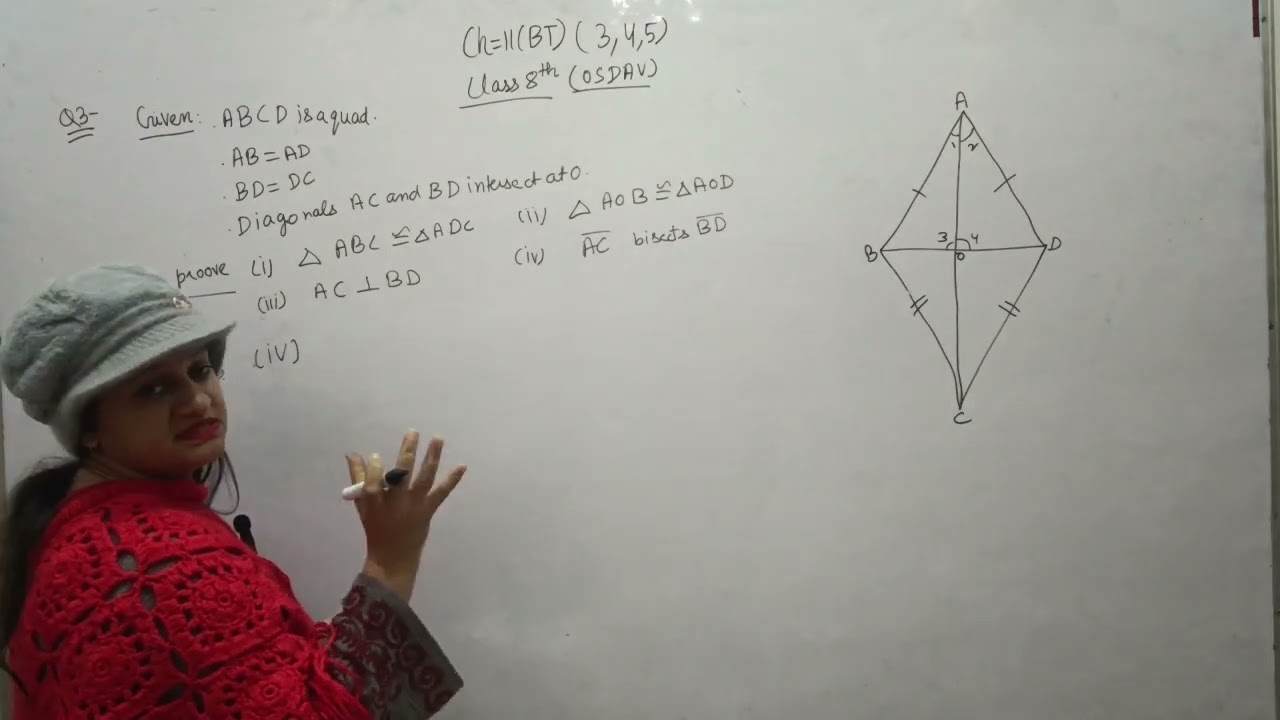 Ch=11(BT) (3,4,5)
Class 8th (OSDAV)
Q3- Given: . ABCD is a quad.
. AB=AD
. BD=DC
. Diagonals AC and BD intersect at O.
prove (i) △ ABC ≅ △ADC (ii) △ AOB ≅ △AOD
(iii) AC ⊥ BD (iv) AC bisects BD
(iv)
A
1 2
B 3 4 D
O
C